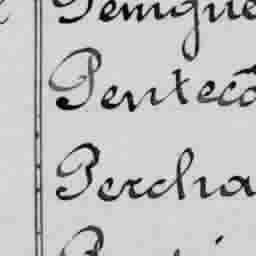 Penigue
Pentecô
Percha